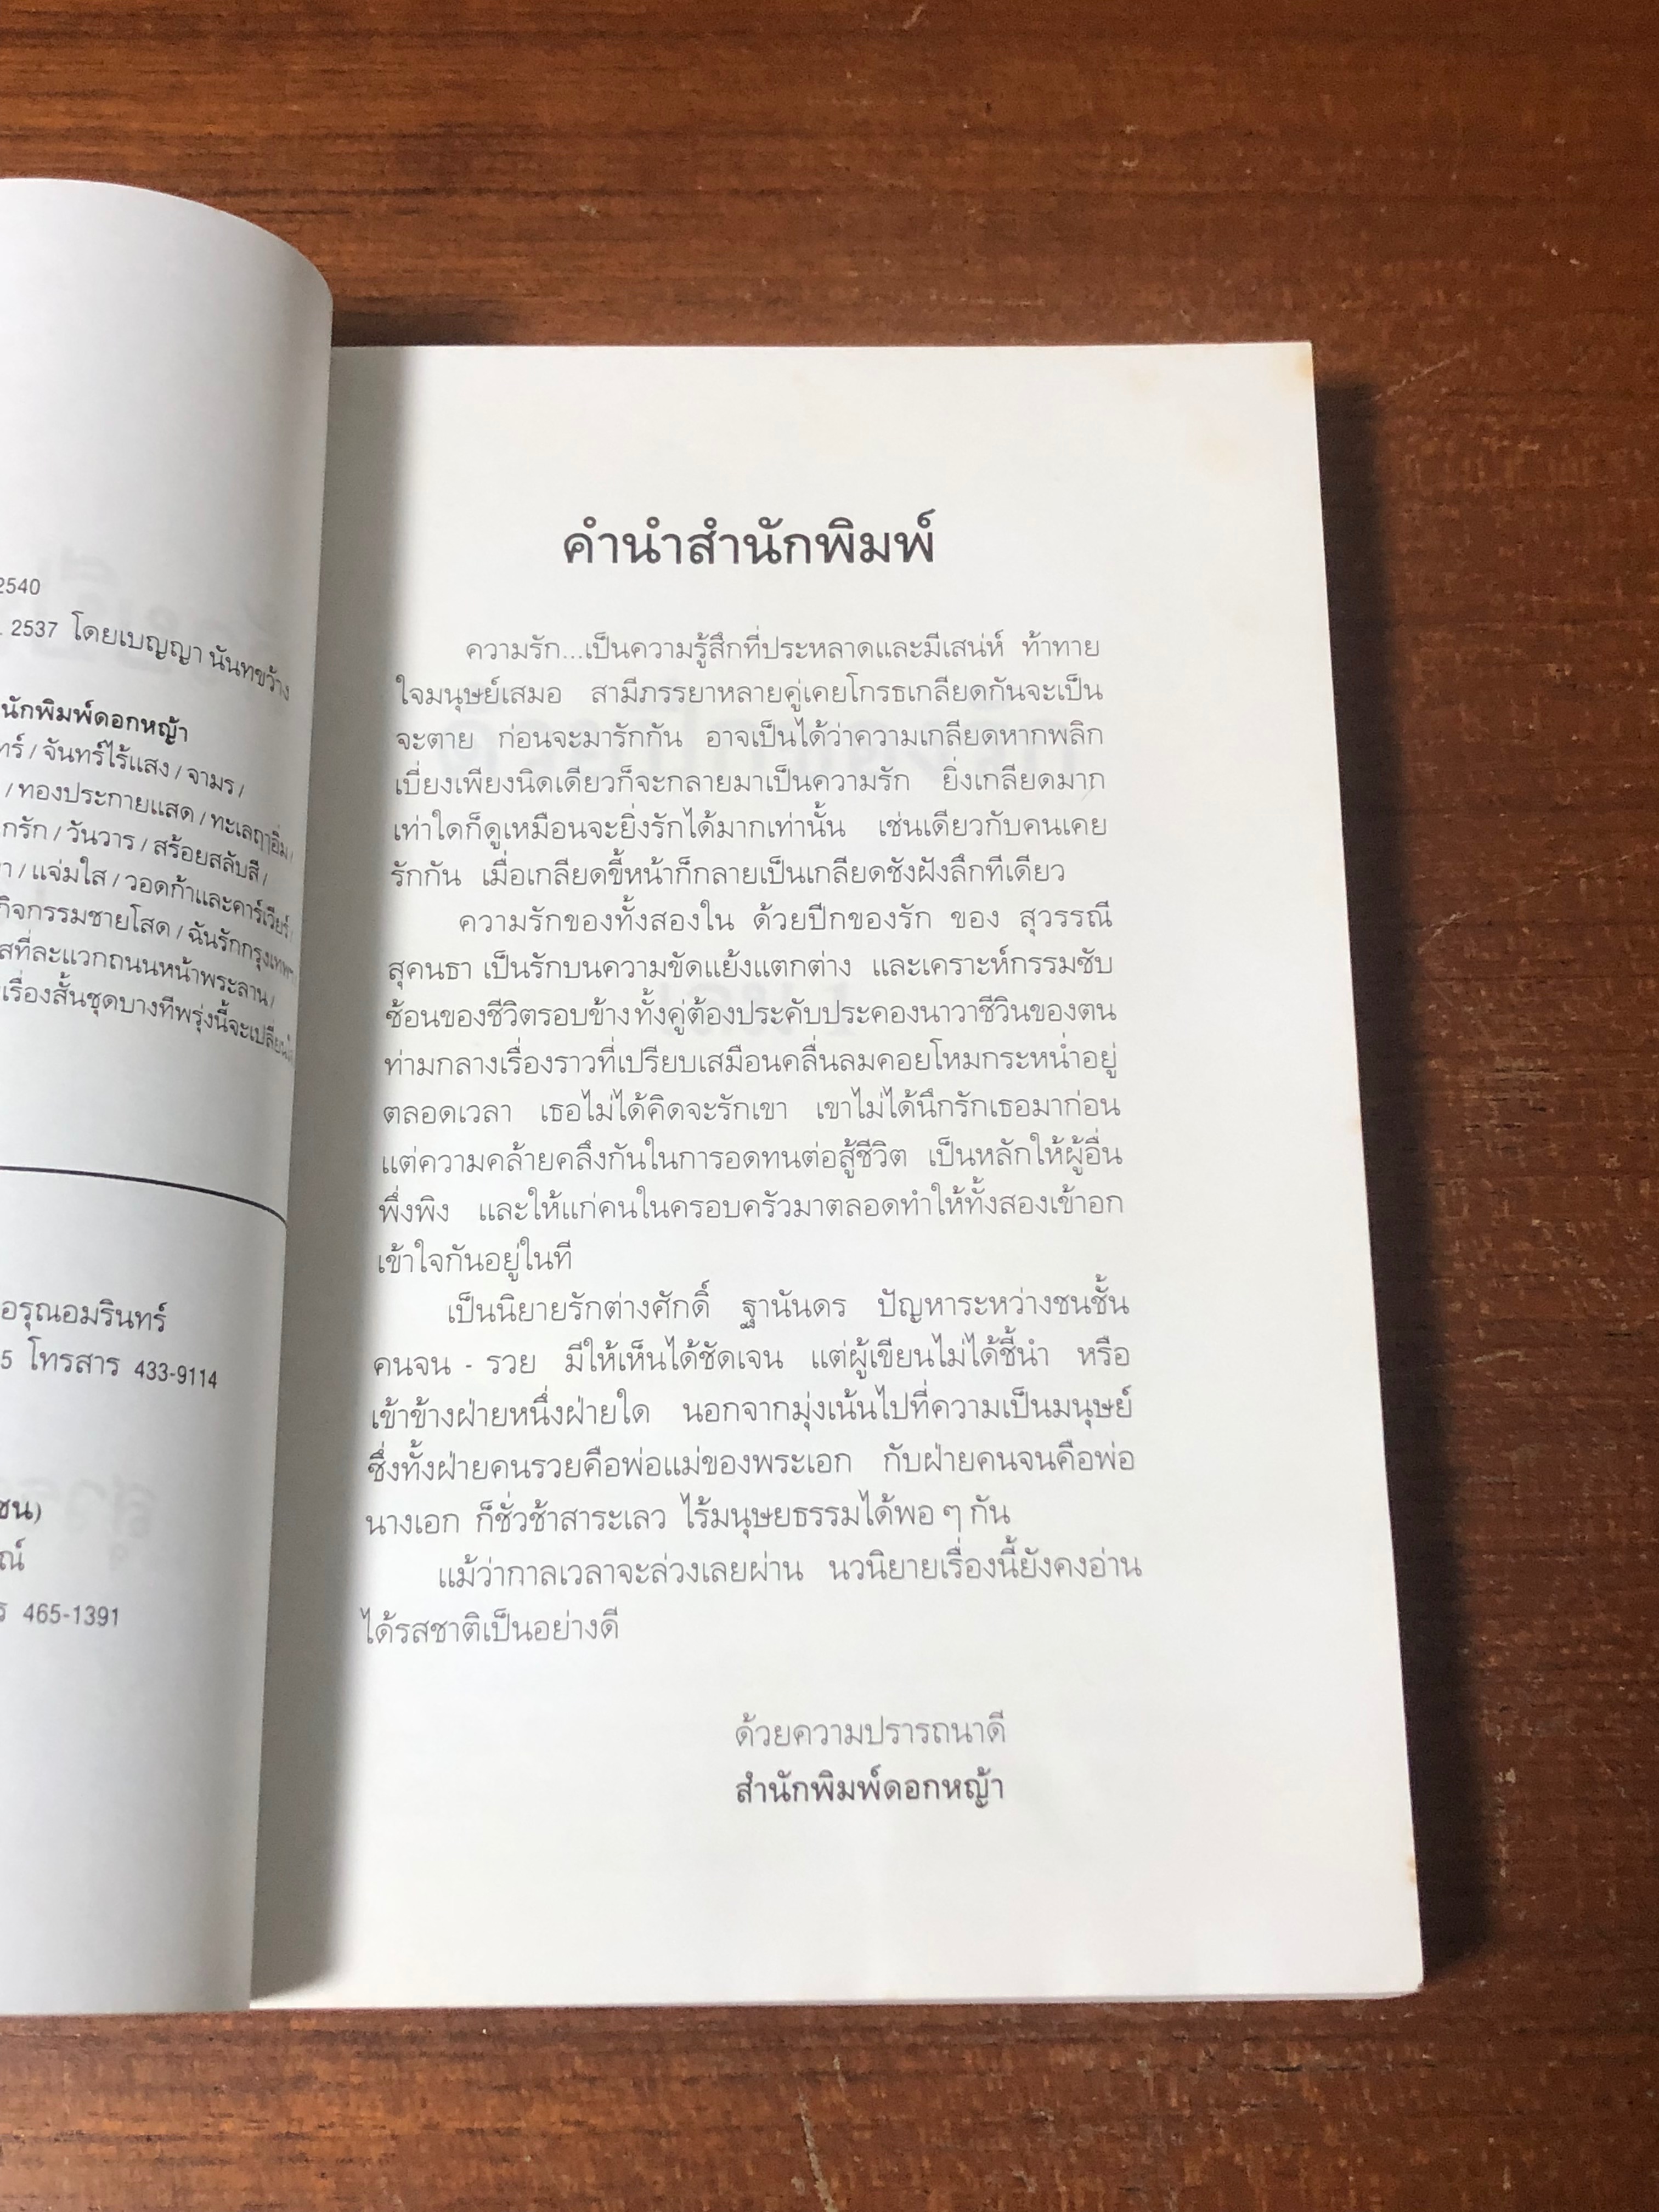 2540
2537 โดยเบญญา นันทขว้าง
นักพิมพ์ดอกหญ้า
/ จันทร์ไร้แสง / จามร /
/ ทองประกายแสด / ทะเลฤาอิ่ม /
กรัก / วันวาร / สร้อยสลับสี /
/ แจ่มใส / วอดก้าและคาร์เวียร์ /
กิจกรรมชายโสด / ฉันรักกรุงเทพฯ
สที่ละแวกถนนหน้าพระลาน /
เรื่องสั้นชุดบางทีพรุ่งนี้จะเปลี่ยน
อรุณอมรินทร์
5 โทรสาร 433-9114
ชน)
ณ์
ร 465-1391
คำนำสำนักพิมพ์
ความรัก...เป็นความรู้สึกที่ประหลาดและมีเสน่ห์ ท้าทาย
ใจมนุษย์เสมอ สามีภรรยาหลายคู่เคยโกรธเกลียดกันจะเป็น
จะตาย ก่อนจะมารักกัน อาจเป็นได้ว่าความเกลียดหากพลิก
เบี่ยงเพียงนิดเดียวก็จะกลายมาเป็นความรัก ยิ่งเกลียดมาก
เท่าใดก็ดูเหมือนจะยิ่งรักได้มากเท่านั้น เช่นเดียวกับคนเคย
รักกัน เมื่อเกลียดขี้หน้าก็กลายเป็นเกลียดชังฝังลึกทีเดียว
ความรักของทั้งสองใน ด้วยปีกของรัก ของ สุวรรณี
สุคนธา เป็นรักบนความขัดแย้งแตกต่าง และเคราะห์กรรมซับ
ซ้อนของชีวิตรอบข้าง ทั้งคู่ต้องประคับประคองนาวาชีวินของตน
ท่ามกลางเรื่องราวที่เปรียบเสมือนคลื่นลมคอยโหมกระหน่ำอยู่
ตลอดเวลา เธอไม่ได้คิดจะรักเขา เขาไม่ได้นึกรักเธอมาก่อน
แต่ความคล้ายคลึงกันในการอดทนต่อสู้ชีวิต เป็นหลักให้ผู้อื่น
พึ่งพิง และให้แก่คนในครอบครัวมาตลอดทำให้ทั้งสองเข้าอก
เข้าใจกันอยู่ในที
เป็นนิยายรักต่างศักดิ์ ฐานันดร ปัญหาระหว่างชนชั้น
คนจน - รวย มีให้เห็นได้ชัดเจน แต่ผู้เขียนไม่ได้ชี้นำ หรือ
เข้าข้างฝ่ายหนึ่งฝ่ายใด นอกจากมุ่งเน้นไปที่ความเป็นมนุษย์
ซึ่งทั้งฝ่ายคนรวยคือพ่อแม่ของพระเอก กับฝ่ายคนจนคือพ่อ
นางเอก ก็ชั่วช้าสาระเลว ไร้มนุษยธรรมได้พอ ๆ กัน
แม้ว่ากาลเวลาจะล่วงเลยผ่าน นวนิยายเรื่องนี้ยังคงอ่าน
ได้รสชาติเป็นอย่างดี
ด้วยความปรารถนาดี
สำนักพิมพ์ดอกหญ้า